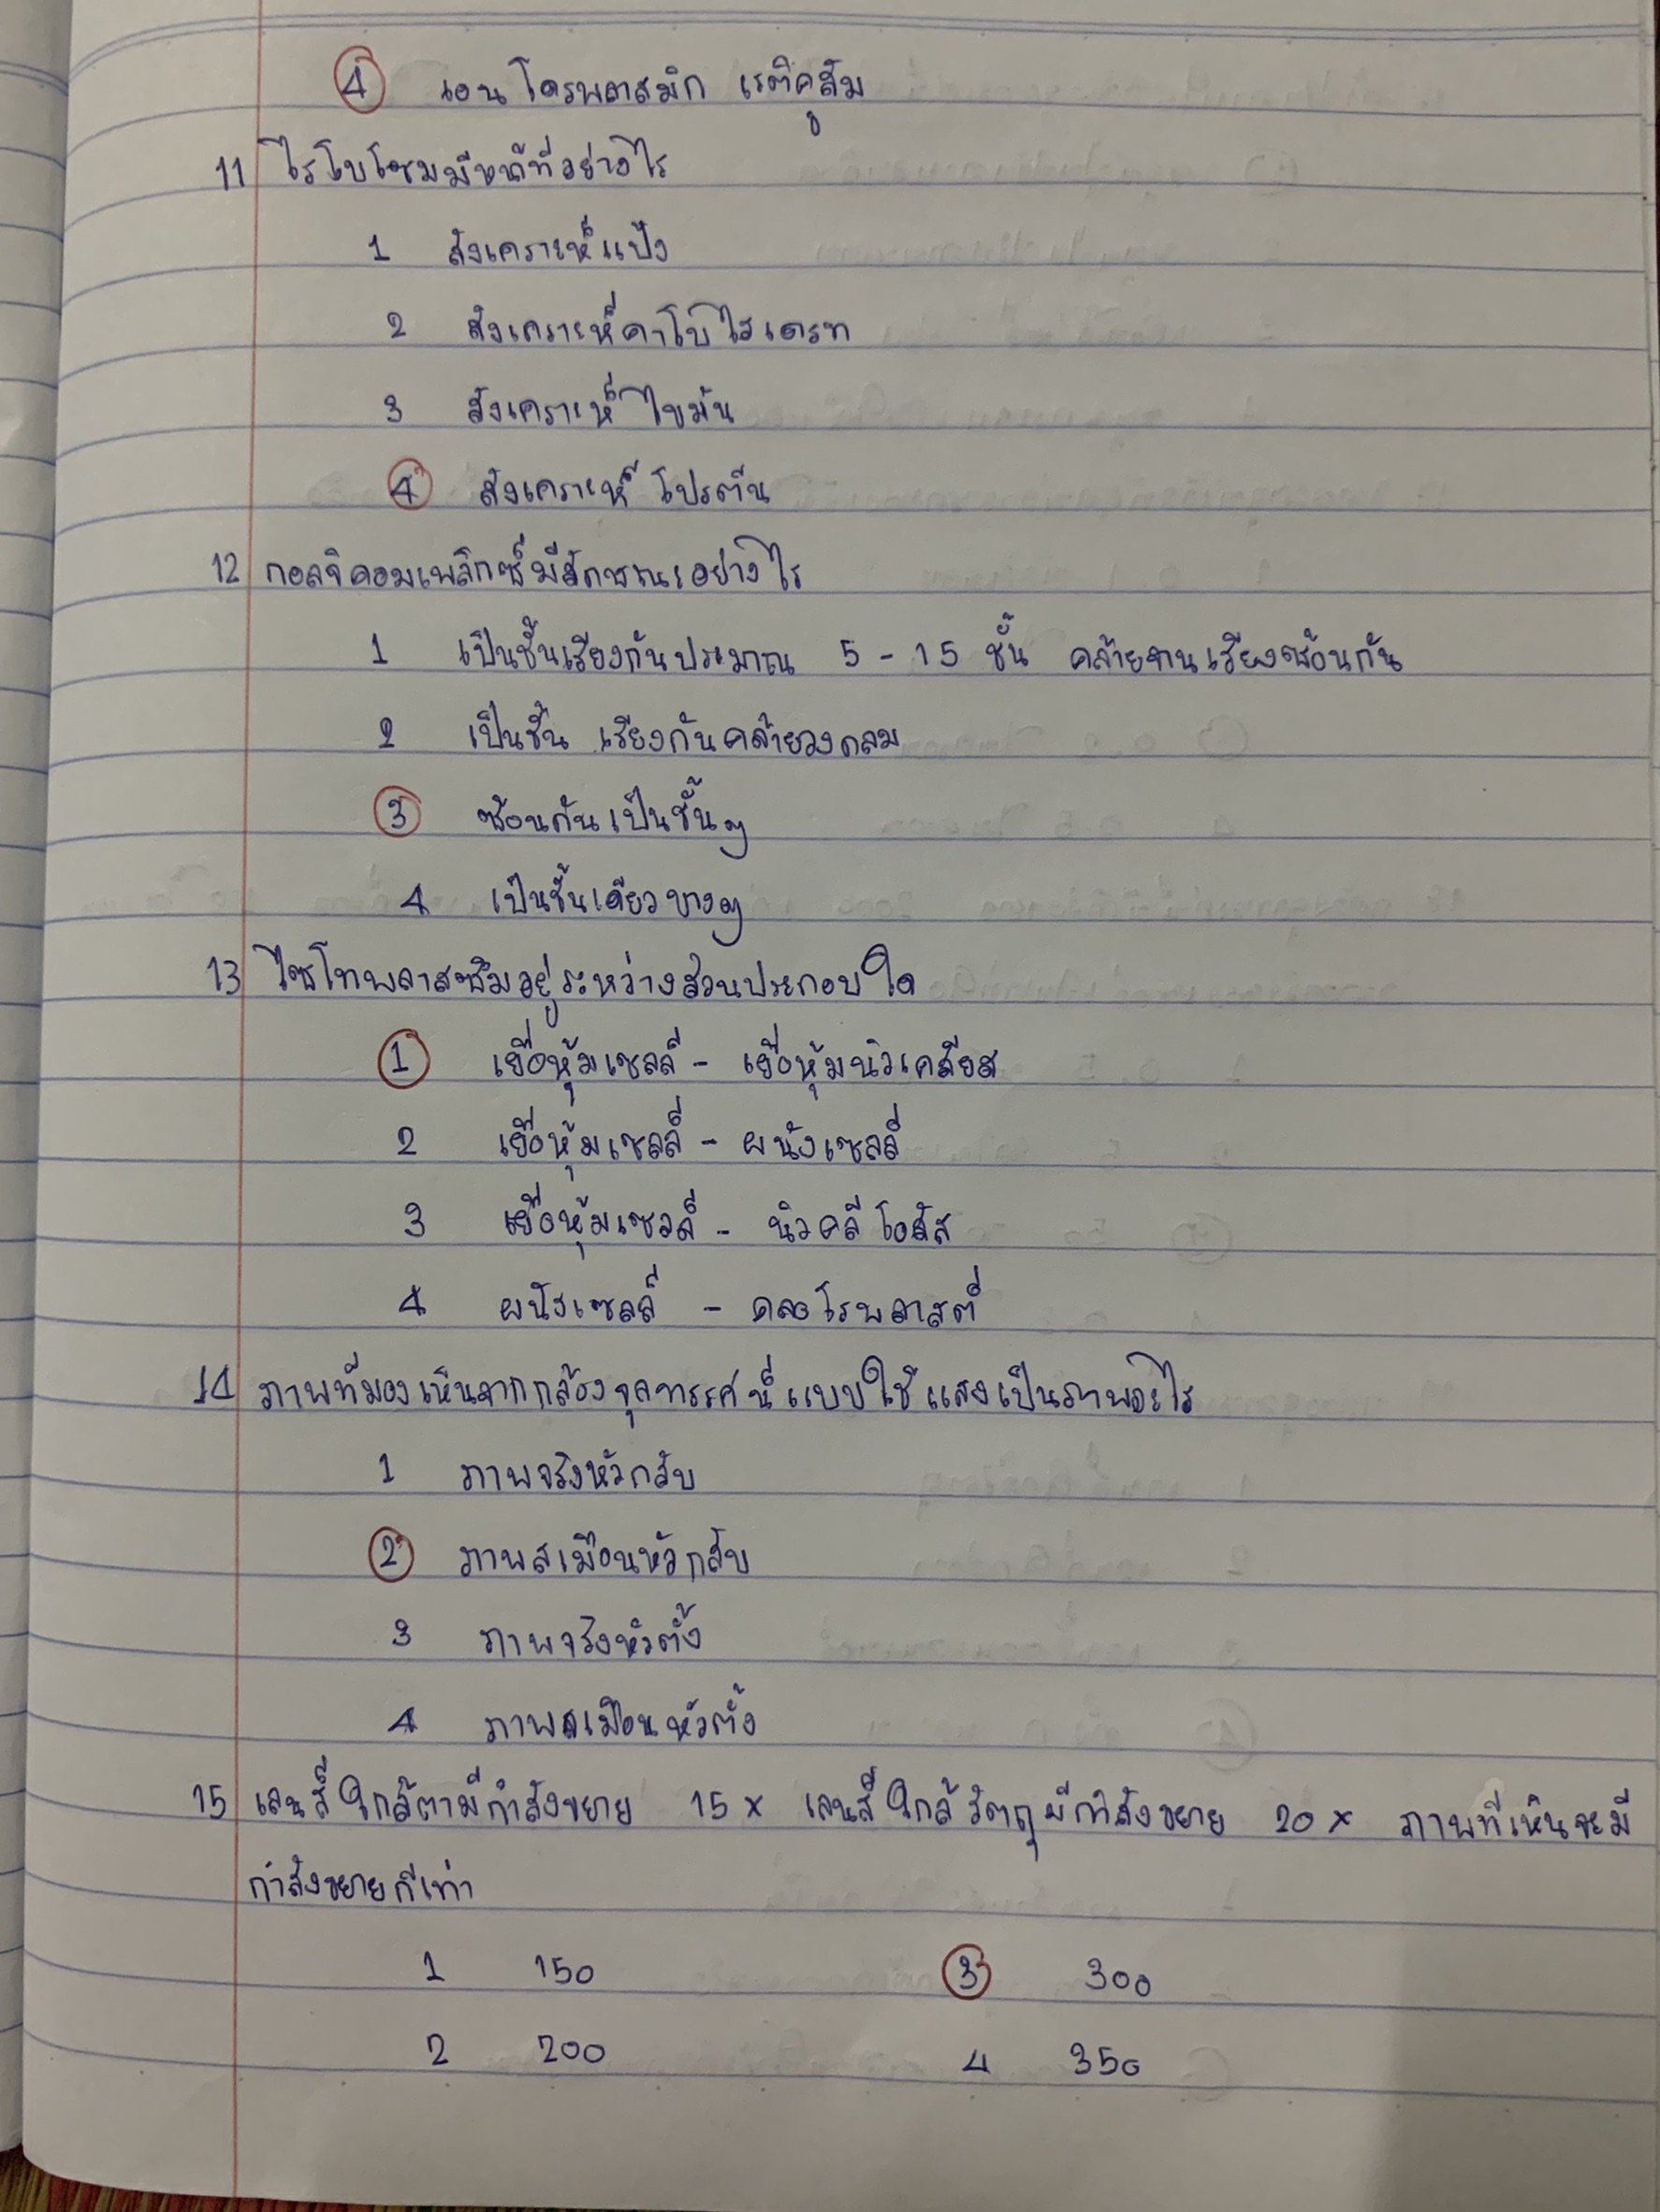 4 เอนโดรพลาสมิก เรติคูลัม
11 ไรโบโซมมีหน้าที่อย่างไร
1 สังเคราะห์แป้ง
2 สังเคราะห์คาโบไฮเดรท
3 สังเคราะห์ไขมัน
4 สังเคราะห์โปรตีน
12 กอลจิคอมเพล็กซ์มีลักษณะอย่างไร
1 เป็นชั้นเรียงกันประมาณ 5 - 15 ชั้น คล้ายจานเรียงซ้อนกัน
2 เป็นชั้น เรียงกันคล้ายวงกลม
3 ซ้อนกันเป็นชั้นๆ
4 เป็นชั้นเดียวบางๆ
13 ไซโทพลาสซึมอยู่ระหว่างส่วนประกอบใด
1 เยื่อหุ้มเซลล์ - เยื่อหุ้มนิวเคลียส
2 เยื่อหุ้มเซลล์ - ผนังเซลล์
3 เยื่อหุ้มเซลล์ - นิวคลีโอลัส
4 ผนังเซลล์ - คลอโรพลาสต์
14 ภาพที่มองเห็นจากกล้องจุลทรรศน์แบบใช้แสงเป็นภาพอะไร
1 ภาพจริงหัวกลับ
2 ภาพสเมือนหัวกลับ
3 ภาพจริงหัวตั้ง
4 ภาพสเมือนหัวตั้ง
15 เลนส์ใกล้ตามีกำลังขยาย 15x เลนส์ใกล้วัตถุมีกำลังขยาย 20x ภาพที่เห็นจะมี
กำลังขยายกี่เท่า
1 150 3 300
2 200 4 350